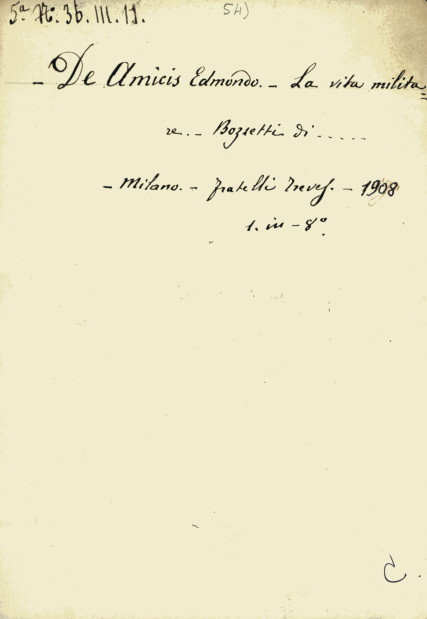 5ª N: 36. III. 11. 54)
- De Amicis Edmondo. - La vita milita=
re. - Bozzetti di .....
- Milano. - Fratelli Treves. - 1908
1. in - 8º.
C.